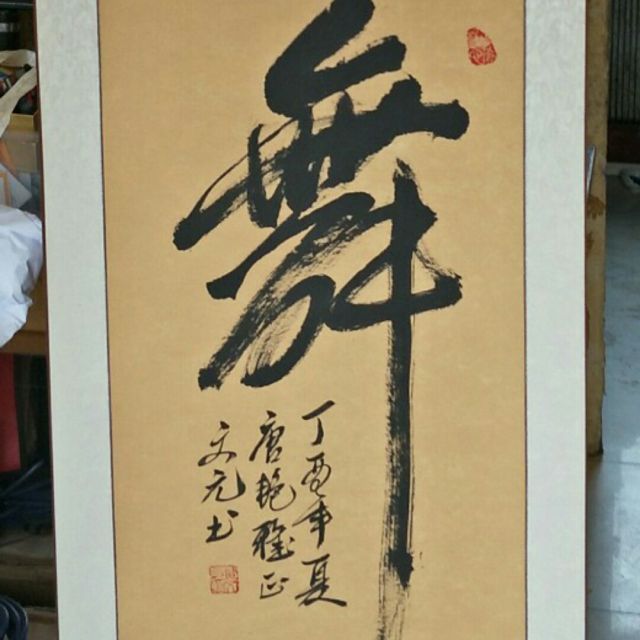 舞
丁酉年夏
唐艳雅正
文元书